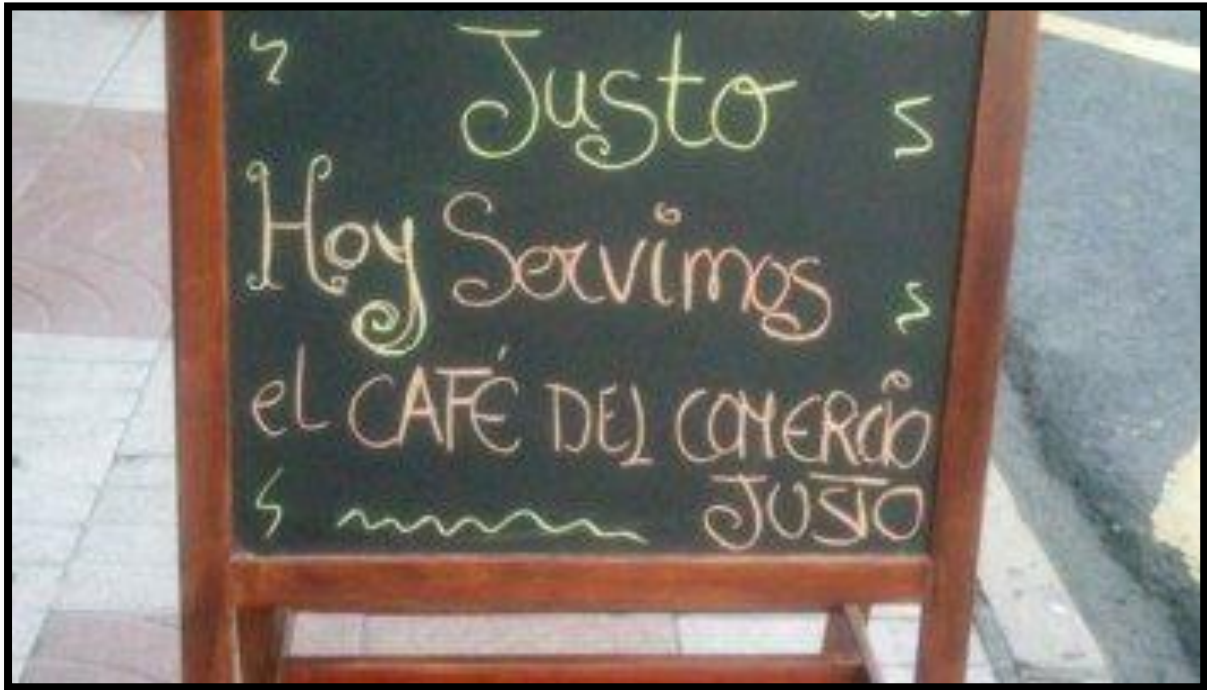 Justo
Hoy Servimos
el CAFÉ DEL COMERCIO
JUSTO